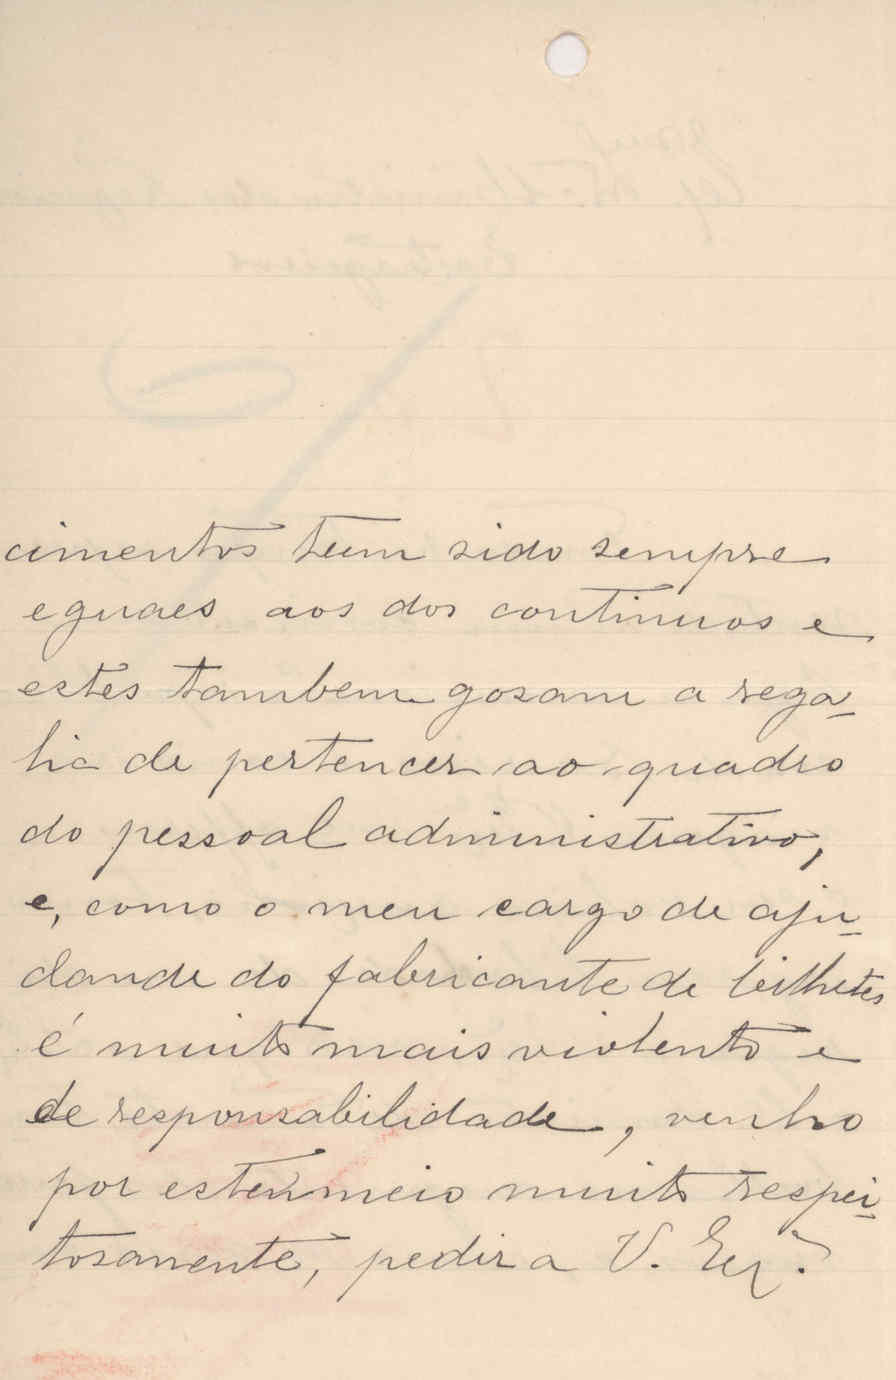 cimentos teem sido sempre
eguaes aos dos continuos e
estes tambem gosam a rega-
lia de pertencer ao quadro
do pessoal administrativo,
e, como o meu cargo de aju-
dande do fabricante de bilhetes
é muito mais violento e
de responsabilidade, venho
por este meio muito respei-
tosamente, pedir a V. Ex.ª